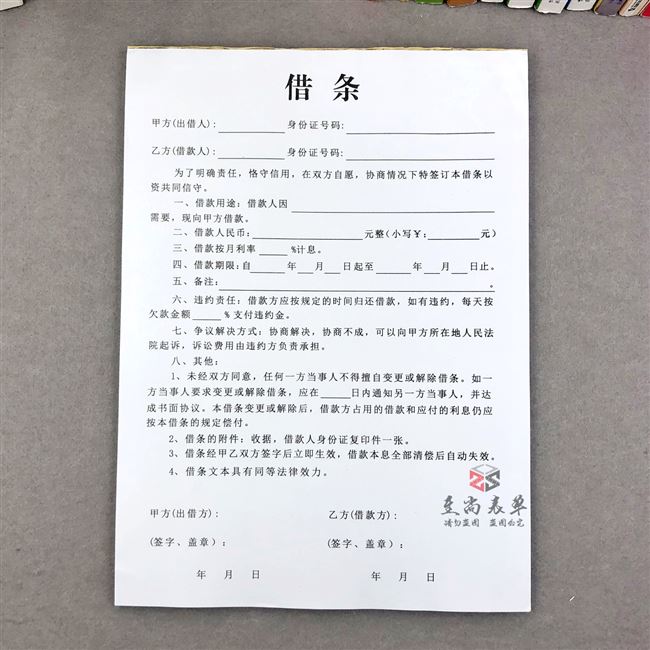 借条
甲方(出借人):________ 身份证号码:________________
乙方(借款人):________ 身份证号码:________________
为了明确责任，恪守信用，在双方自愿，协商情况下特签订本借条以
资共同信守。
一、借款用途：借款人因________________________
需要，现向甲方借款。
二、借款人民币：______________元整(小写￥:________元)
三、借款按月利率____%计息。
四、借款期限：自____年___月___日起至_____年___月___日止。
五、备注:________________________________。
六、违约责任：借款方应按规定的时间归还借款，如有违约，每天按
欠款金额____%支付违约金。
七、争议解决方式：协商解决，协商不成，可以向甲方所在地人民法
院起诉，诉讼费用由违约方负责承担。
八、其他：
1、未经双方同意，任何一方当事人不得擅自变更或解除借条。如一
方当事人要求变更或解除借条，应在____日内通知另一方当事人，并达
成书面协议。本借条变更或解除后，借款方占用的借款和应付的利息仍应
按本借条的规定偿付。
2、借条的附件：收据，借款人身份证复印件一张。
3、借条经甲乙双方签字后立即生效，借款本息全部清偿后自动失效。
4、借条文本具有同等法律效力。
至尚表单
请勿盗图 盗图必究
甲方(出借方): 乙方(借款方):
(签字、盖章): (签字、盖章):
年 月 日 年 月 日